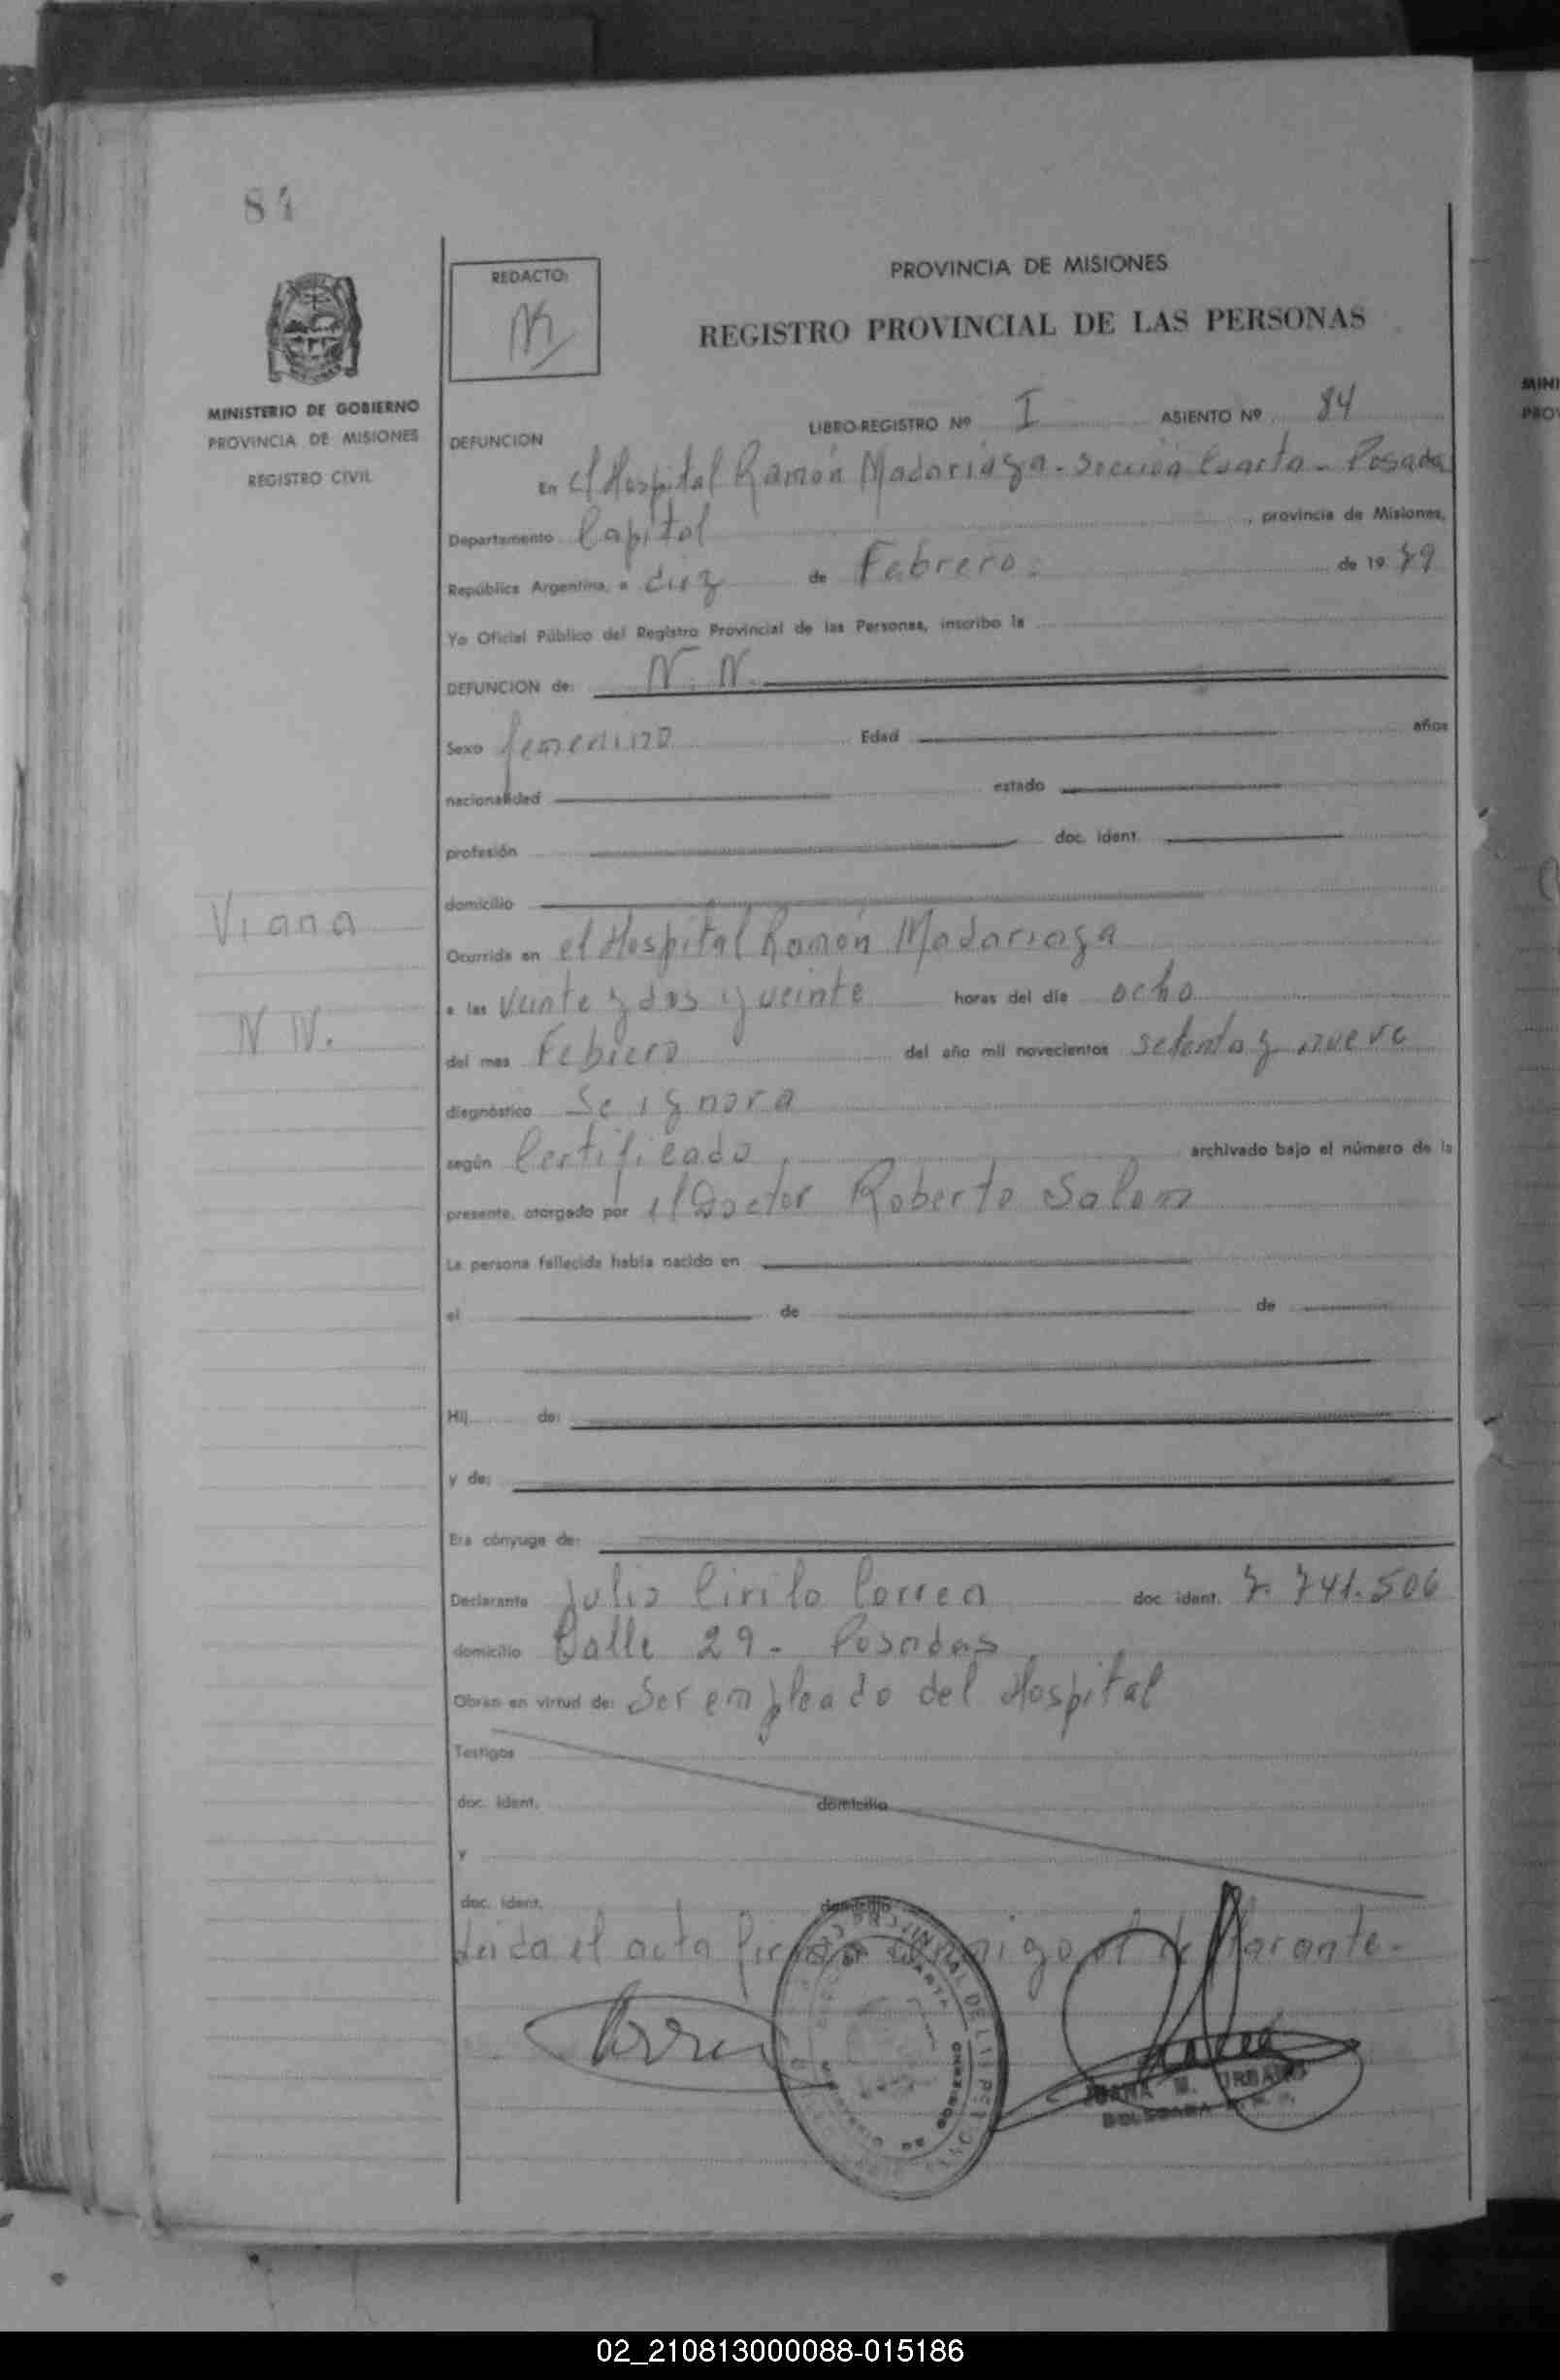 84
REDACTO:
PROVINCIA DE MISIONES
REGISTRO PROVINCIAL DE LAS PERSONAS
MINISTERIO DE GOBIERNO
PROVINCIA DE MISIONES
REGISTRO CIVIL
DEFUNCION LIBRO-REGISTRO Nº I ASIENTO Nº 84
En el Hospital Ramón Madariaga - Sección Cuarta - Posada
Departamento Capital, provincia de Misiones,
República Argentina, a diez de Febrero de 19 79
Yo Oficial Público del Registro Provincial de las Personas, inscribo la
DEFUNCION de: N. N.
Sexo femenino Edad años
nacionalidad estado
profesión doc. ident.
domicilio
Viana
Ocurrida en el Hospital Ramón Madariaga
a las veinte y dos y veinte horas del día ocho
N N.
del mes Febrero del año mil novecientos setenta y nueve
diagnóstico Se ignora
según Certificado archivado bajo el número de la
presente, otorgado por el Doctor Roberto Salom
La persona fallecida había nacido en
el de de
Hij de:
y de:
Era cónyuge de:
Declarante Julio Cirilo Correa doc. ident. 7.741.506
domicilio Calle 29 - Posadas
Obran en virtud de: Ser empleado del Hospital
Testigos
doc. ident. domicilio
y
doc. ident. domicilio
Leida el acta firma conmigo el declarante.
Correa
CUARTA
MINISTERIO DE GOBIERNO
JUANA URBANO
DELEGADA
MINI
PROV
02_210813000088-015186